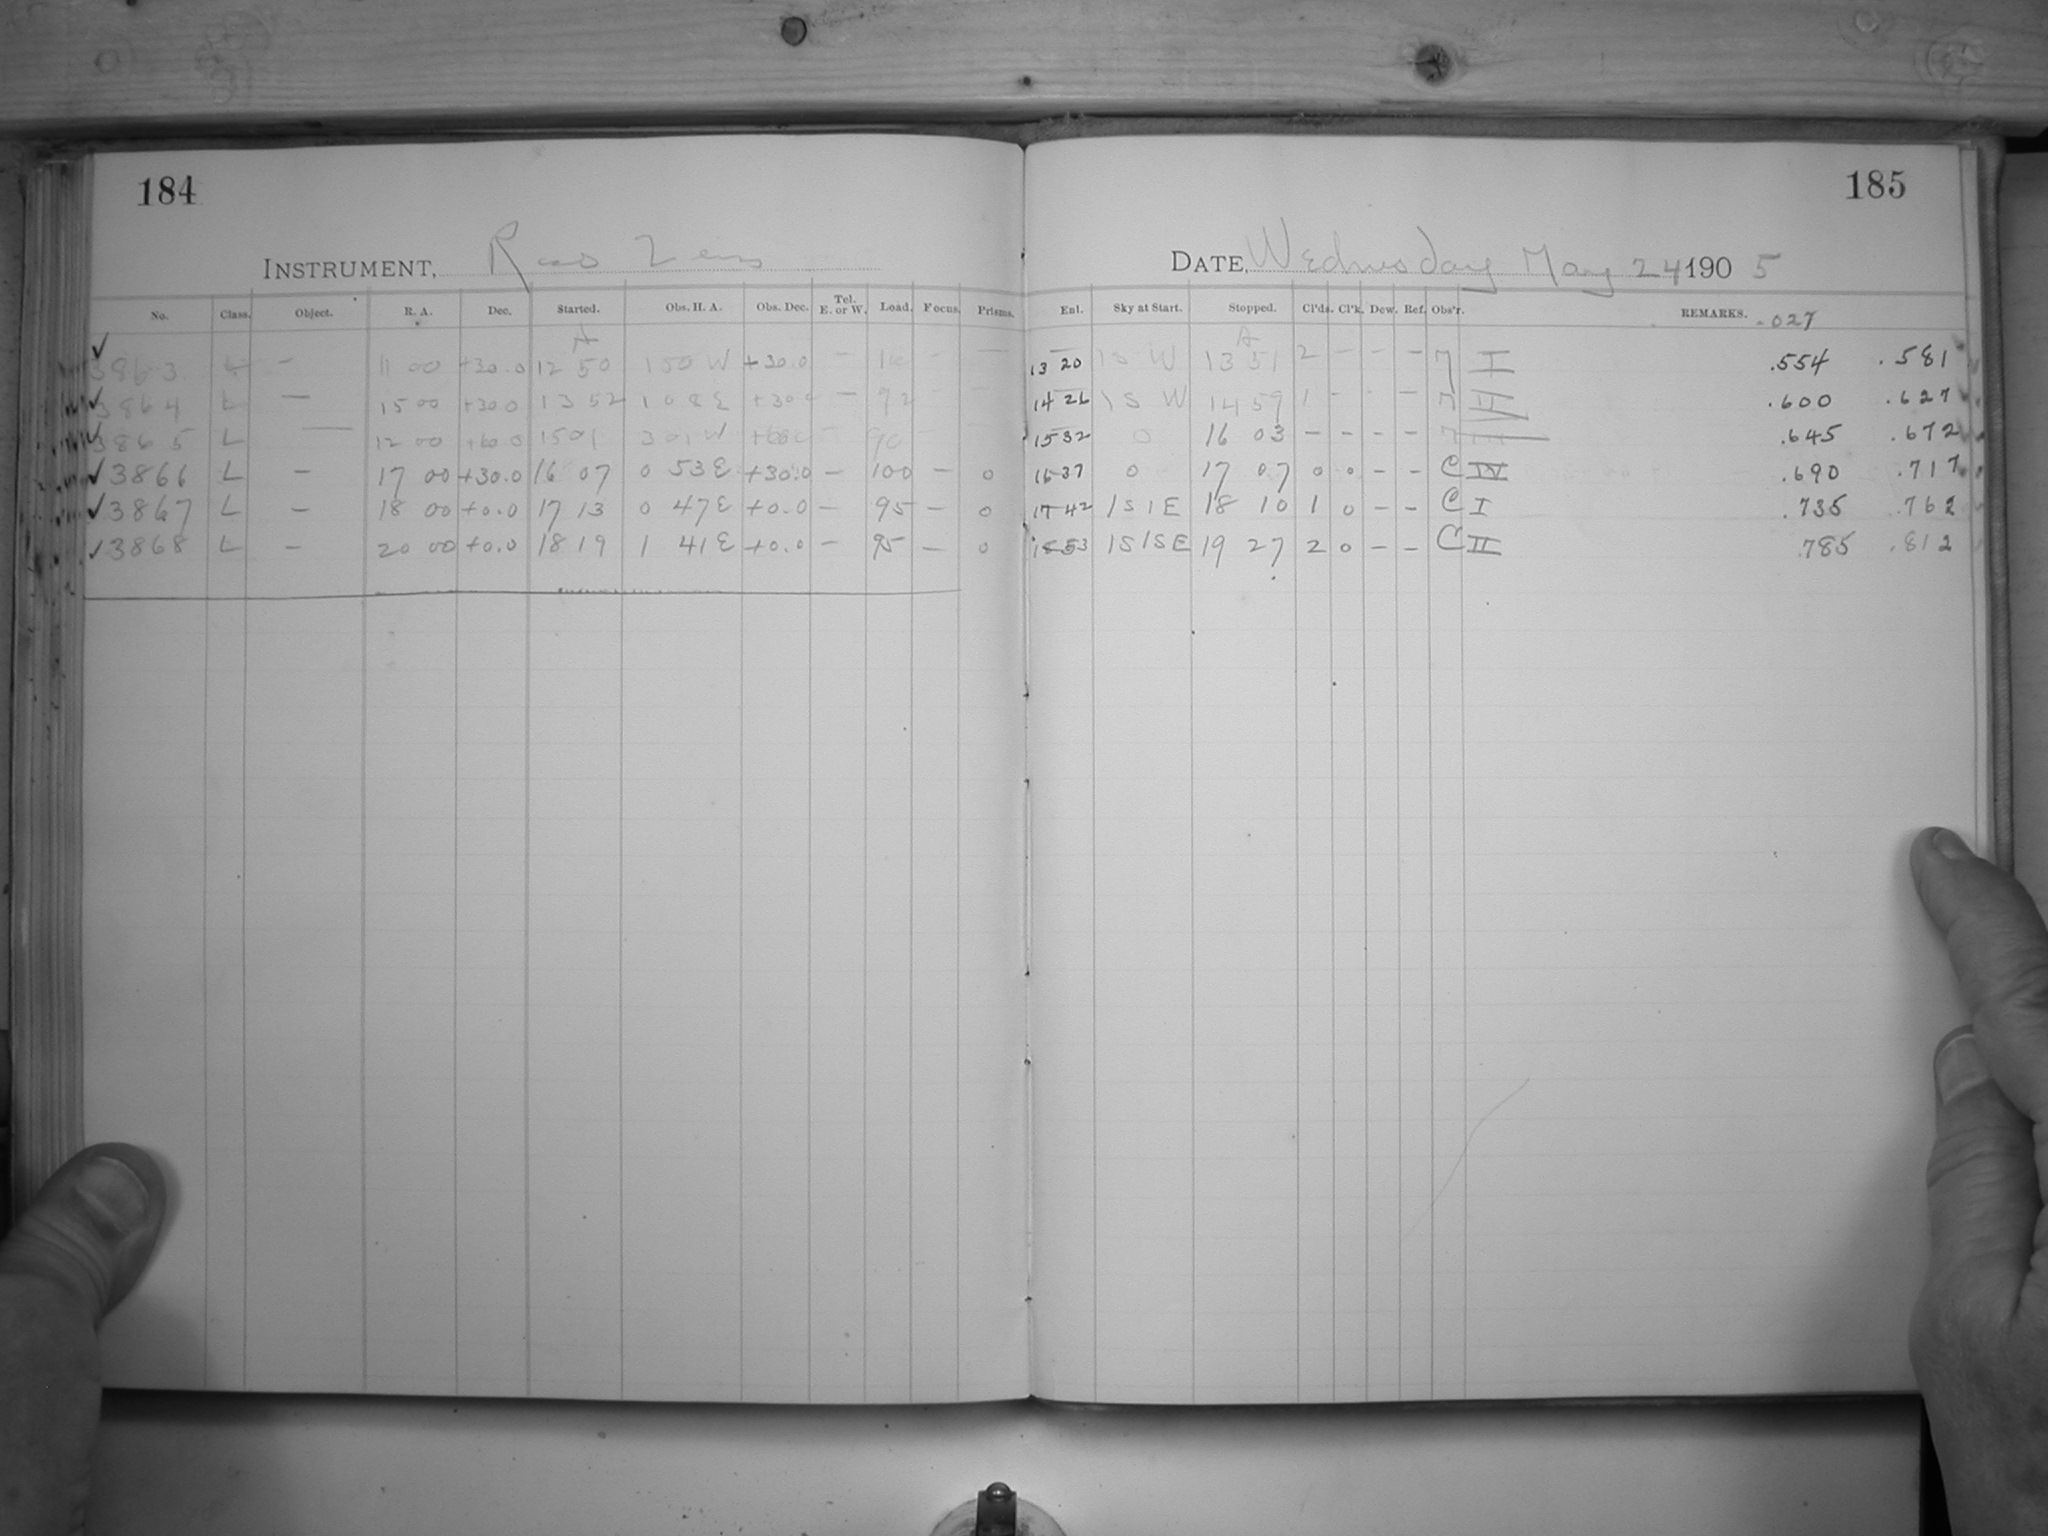 184
INSTRUMENT, Ross Lens
No. Class. Object. R. A. Dec. Started. Obs. H. A. Obs. Dec. Tel. E. or W. Load. Focus. Prisms.
A
✓ 3863 L — 11 00 +30.0 12 50 1 50 W +30.0 — — —
✓ 3864 L — 15 00 +30.0 13 52 1 08 E +30.0 — 92
✓ 3865 L — 12 00 +60.0 15 01 3 01 W +60.0 — 90
✓ 3866 L — 17 00 +30.0 16 07 0 53 E +30.0 — 100 — 0
✓ 3867 L — 18 00 +0.0 17 13 0 47 E +0.0 — 95 — 0
✓ 3868 L — 20 00 +0.0 18 19 1 41 E +0.0 — 95 — 0
185
DATE, Wednesday May 24 190 5
Enl. Sky at Start. Stopped. Cl'ds. Cl'k. Dew. Ref. Obs'r. REMARKS. .027
A
13 20 1 S W 13 51 2 — — — I .554 .581
14 26 1 S W 14 59 1 - - - II .600 .627
15 32 0 16 03 — — — — III .645 .672
16 37 0 17 07 0 0 — — C IV .690 .717
17 42 1 S 1 E 18 10 1 0 — — C I .735 .762
18 53 1 S 1 S E 19 27 2 0 — — C II .785 .812